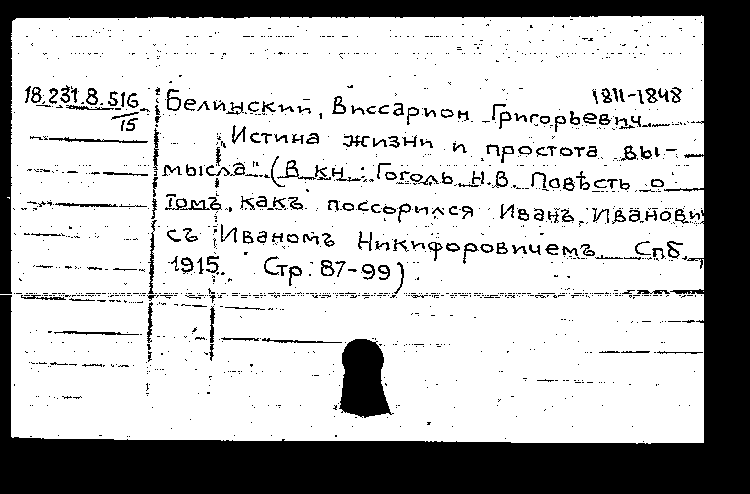 18.231.8.516
15
1811-1848
Белинский, Виссарион Григорьевич
„Истина жизни и простота вы-
мысла" (В кн.: Гоголь Н.В. Повѣсть о
томъ, какъ поссорился Иванъ Иванови
съ Иваномъ Никифоровичемъ. Спб.
1915. Стр. 87-99)